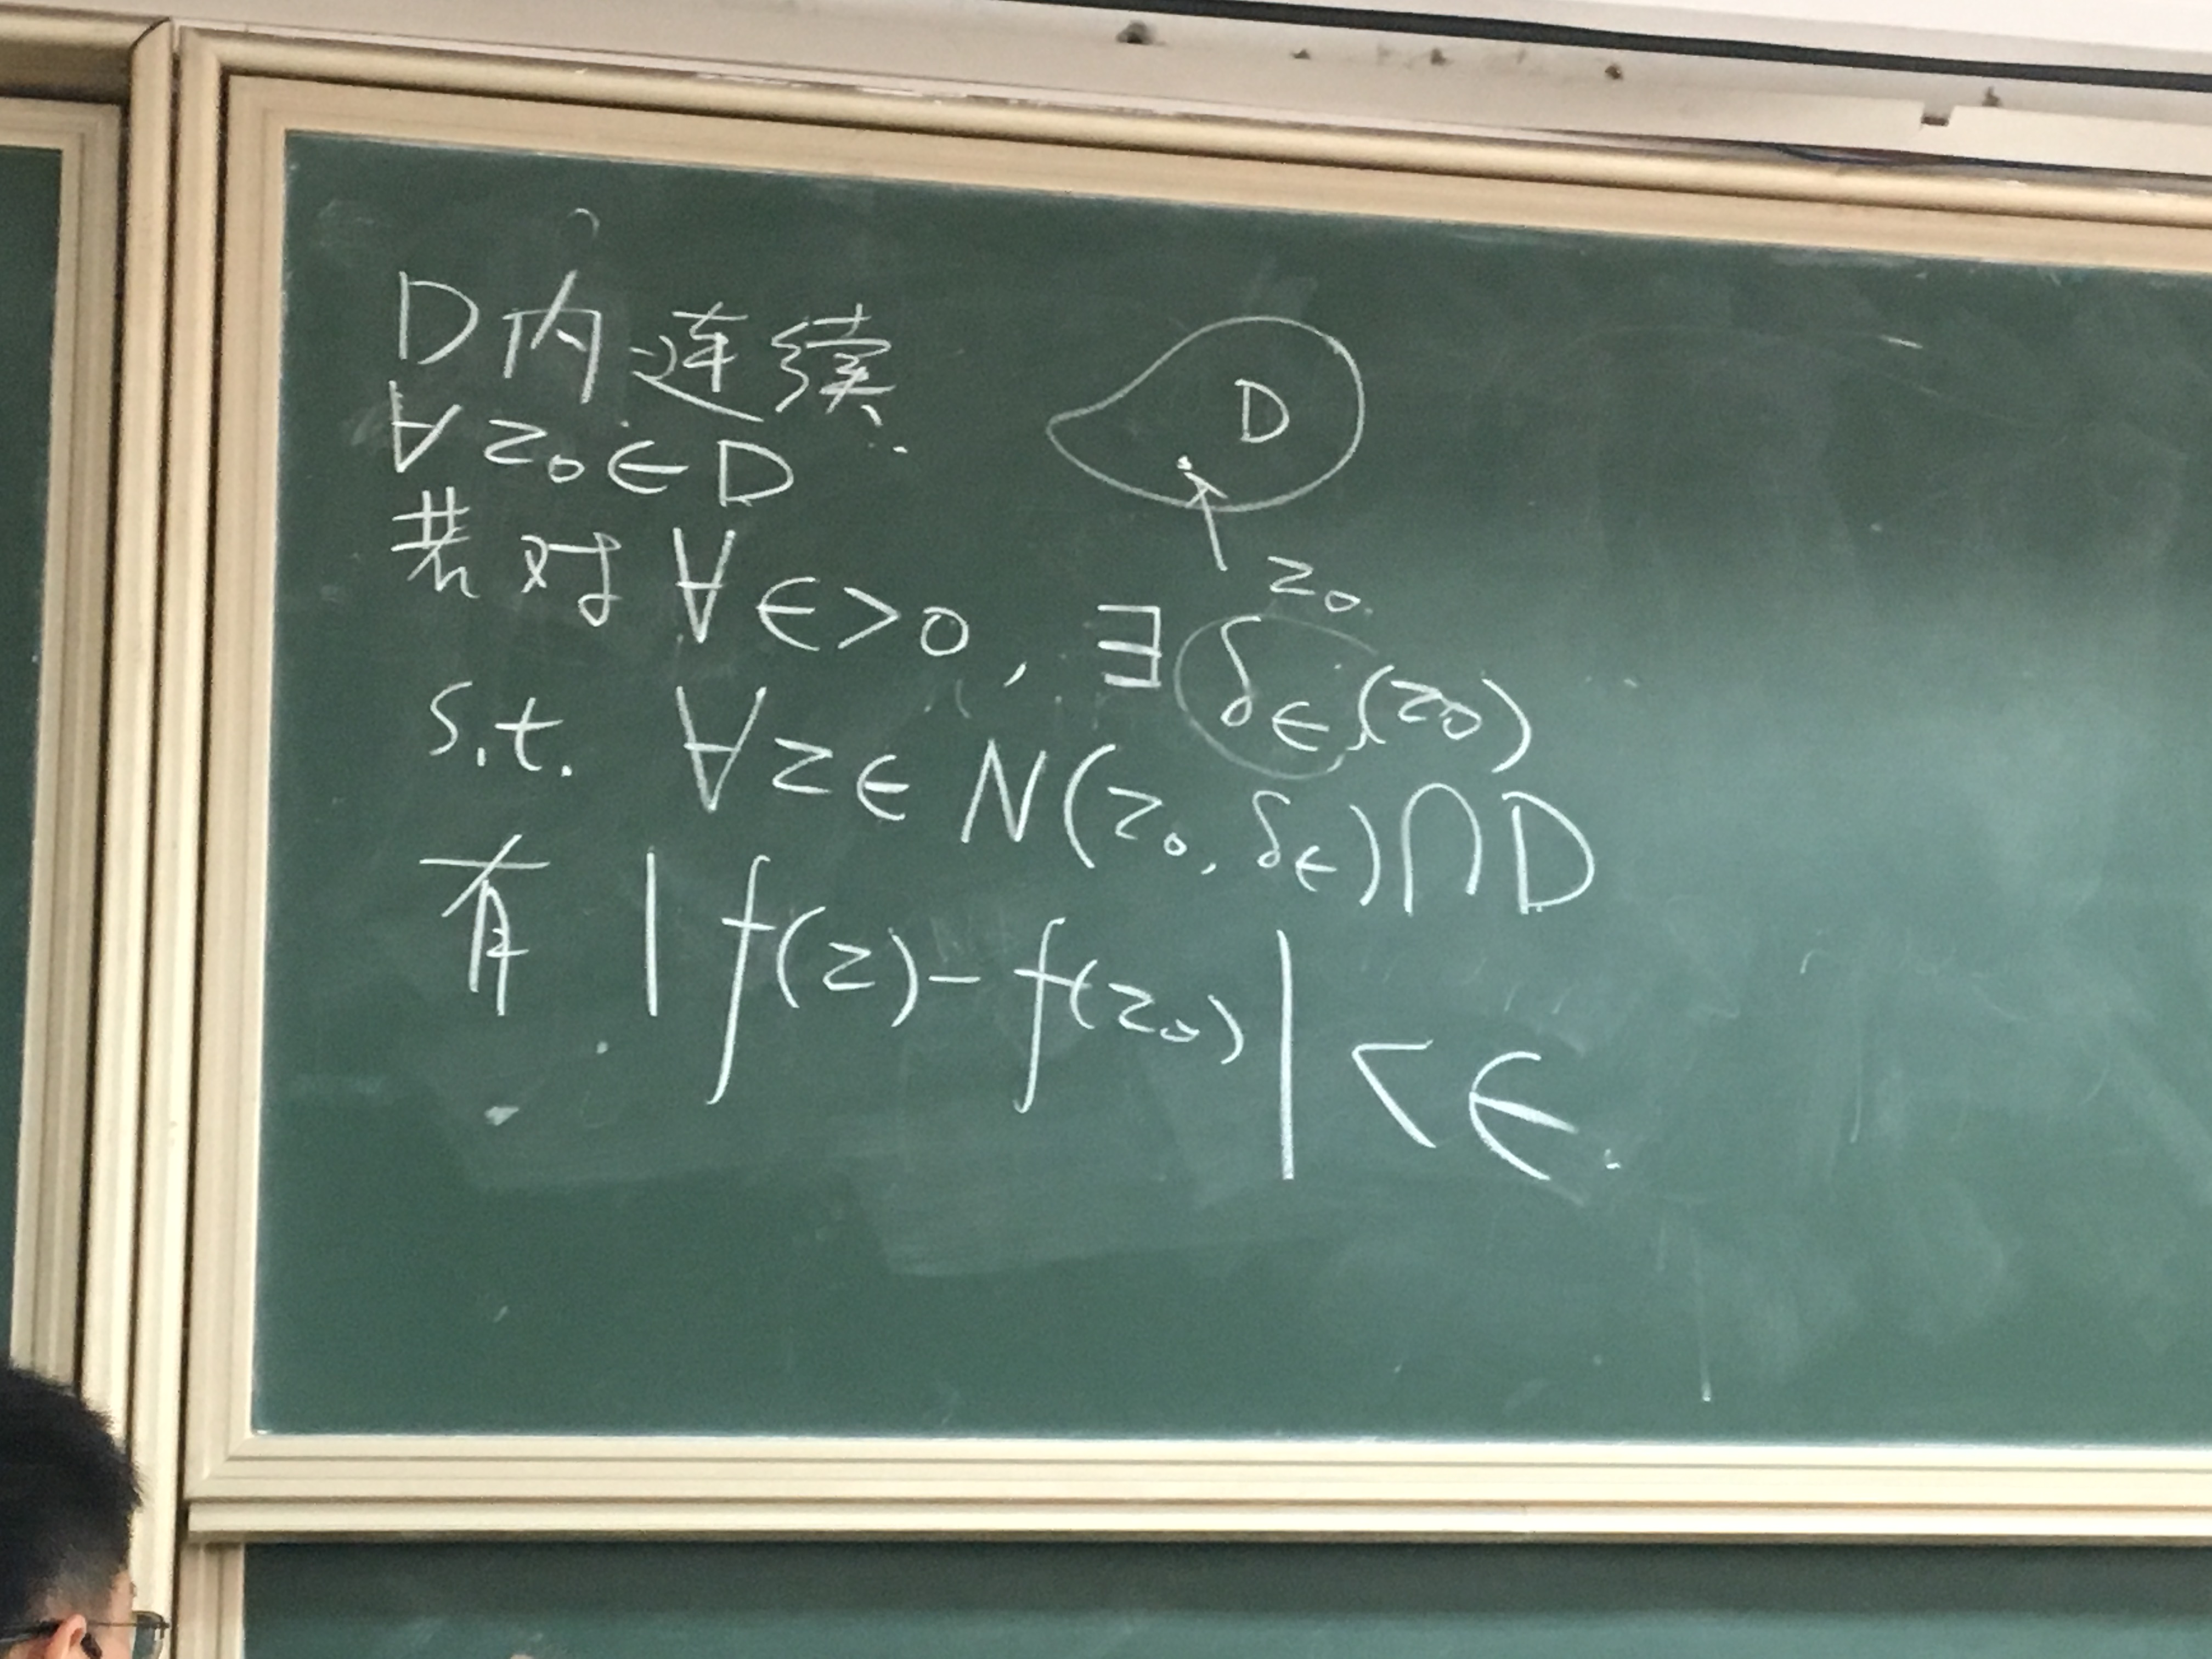 D内连续.
∀z₀∈D
若对∀ϵ>0, ∃δ_ϵ(z₀)
s.t. ∀z∈N(z₀, δ_ϵ)∩D
有 |f(z)-f(z₀)|<ϵ.
D
z₀